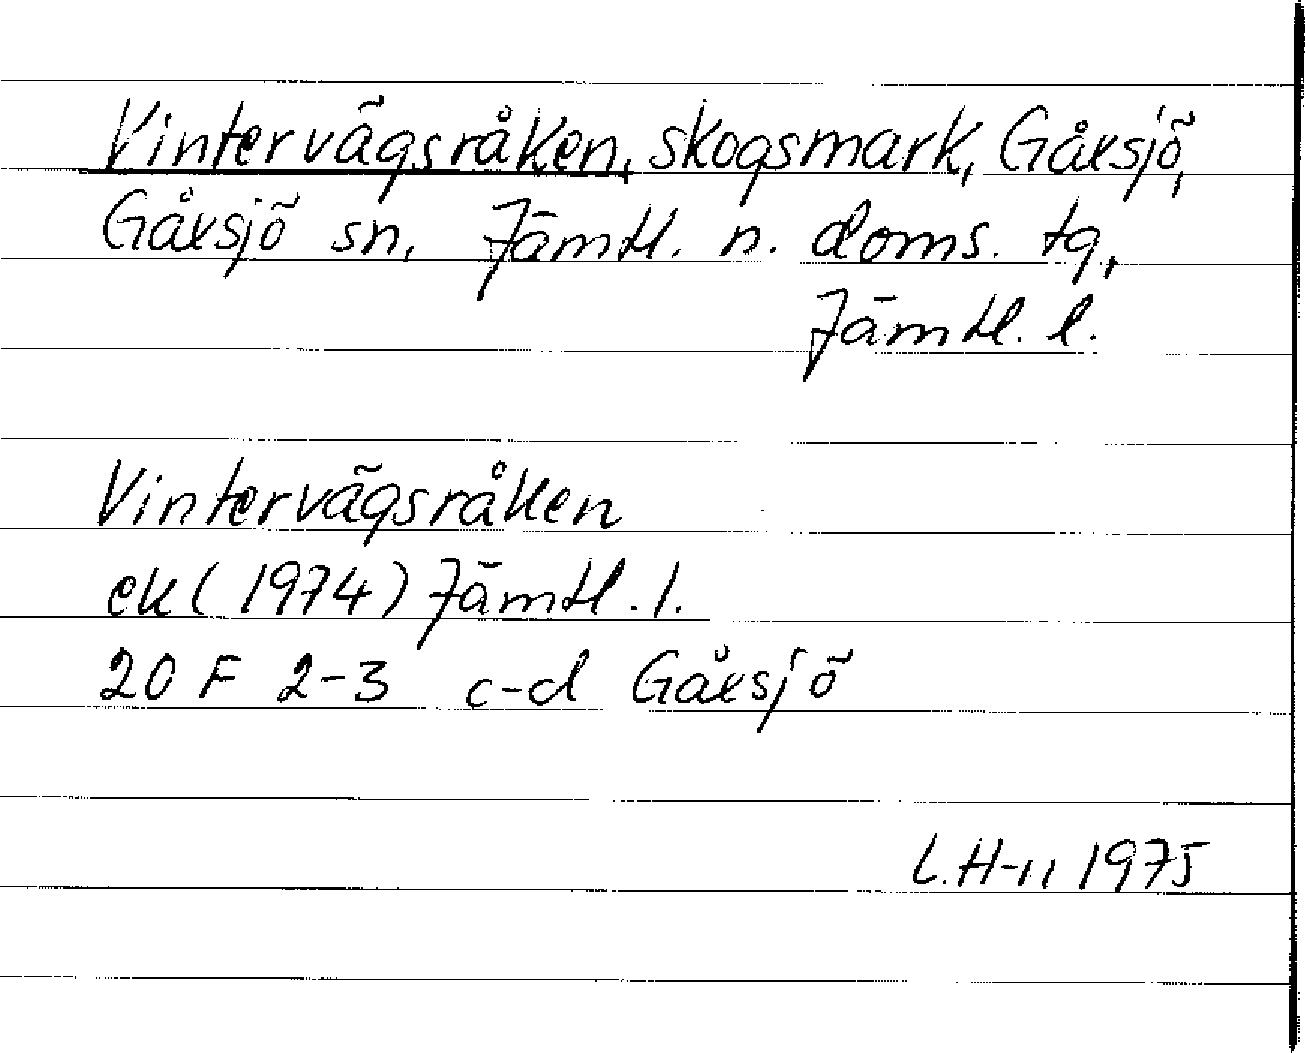 Vintervägsråken, skogsmark, Gåxsjö,
Gåxsjö sn, Jämtl. n. doms. tg,
Jämtl. l.
Vintervägsråken
ek (1974) Jämtl. l.
20 F 2-3 c-d Gåxsjö
L. H-n 1975